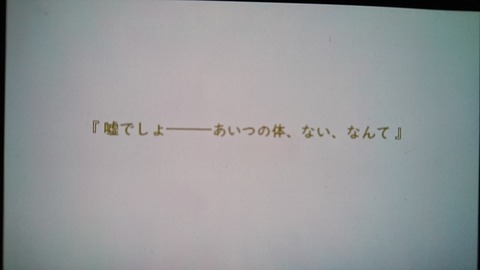 『 嘘でしょ――あいつの体、ない、なんて 』